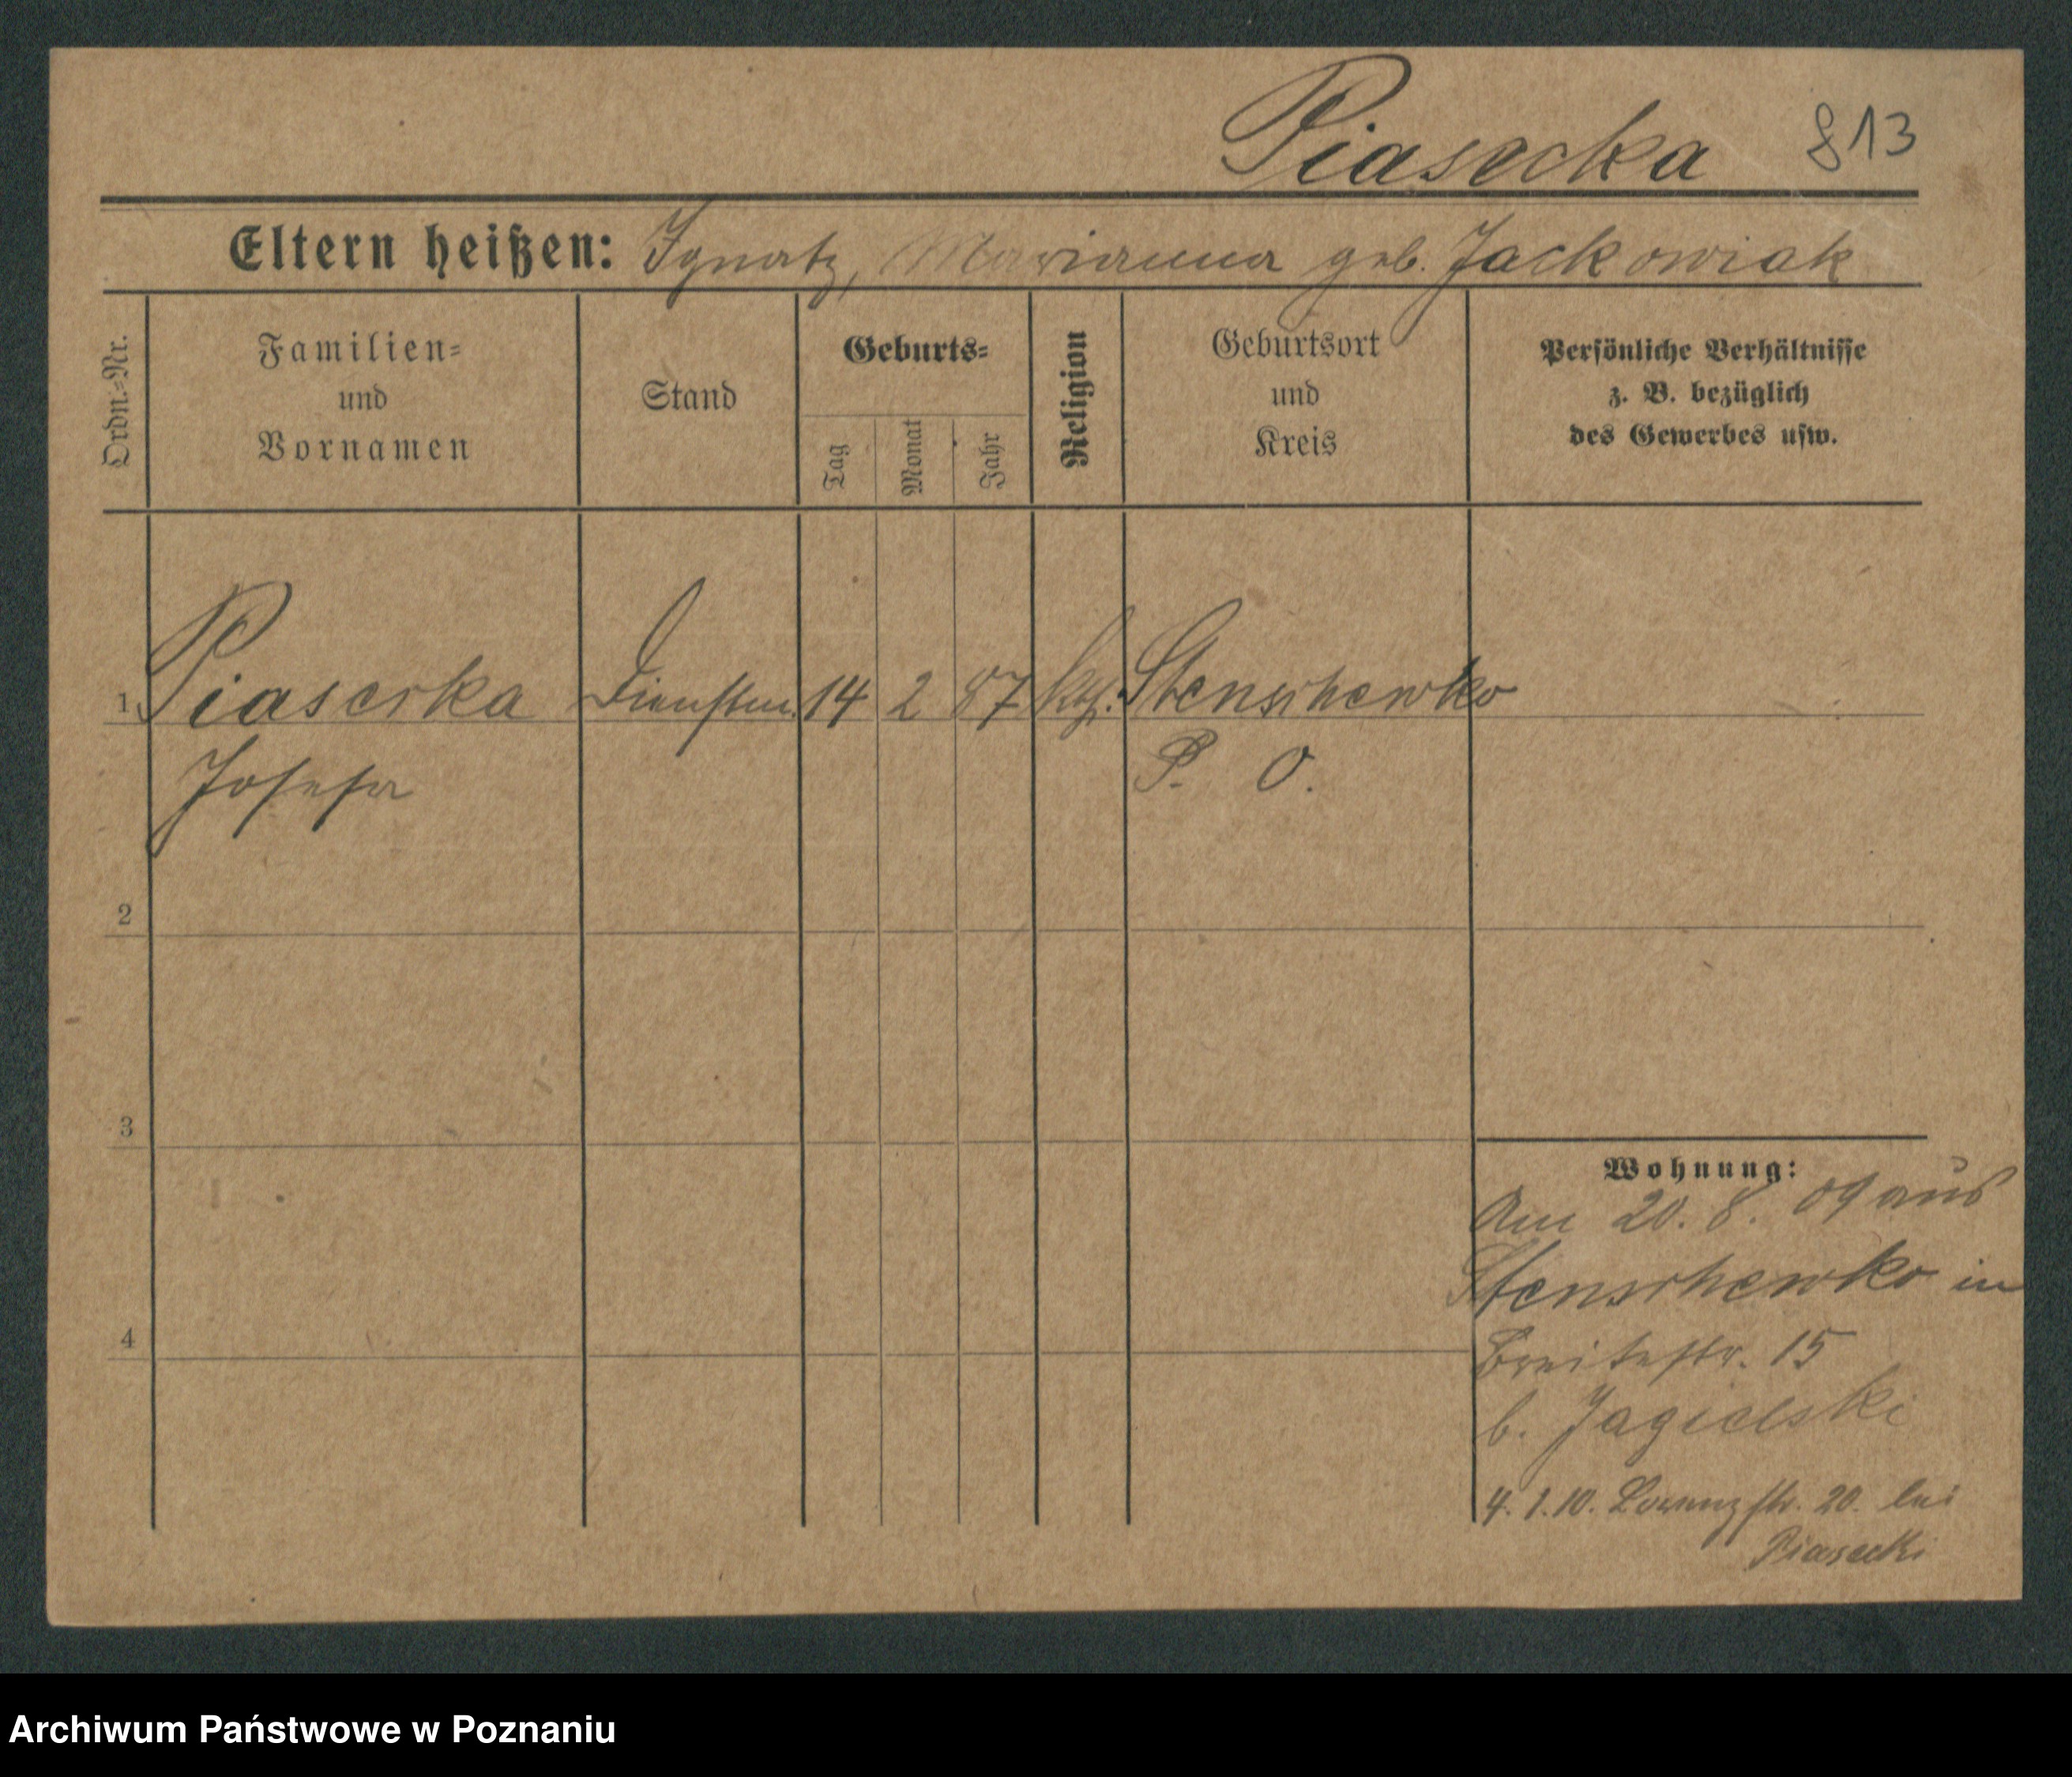 Piasecka 813
Eltern heißen: Ignatz, Marianna geb. Jackowiak
Ordn.-Nr.
Familien-
und
Vornamen
Stand
Geburts-
Tag
Monat
Jahr
Religion
Geburtsort
und
Kreis
Persönliche Verhältnisse
z. B. bezüglich
des Gewerbes usw.
1 Piasecka Dienstm. 14 2 87 kath. Stenschewko
Josefa P. O.
2
3
4
Wohnung:
Am 20. 8. 09 aus
Stenschewko in
Breitestr. 15
b. Jagielski
4. 1. 10. Lorenzstr. 20. bei
Piasecki
Archiwum Państwowe w Poznaniu